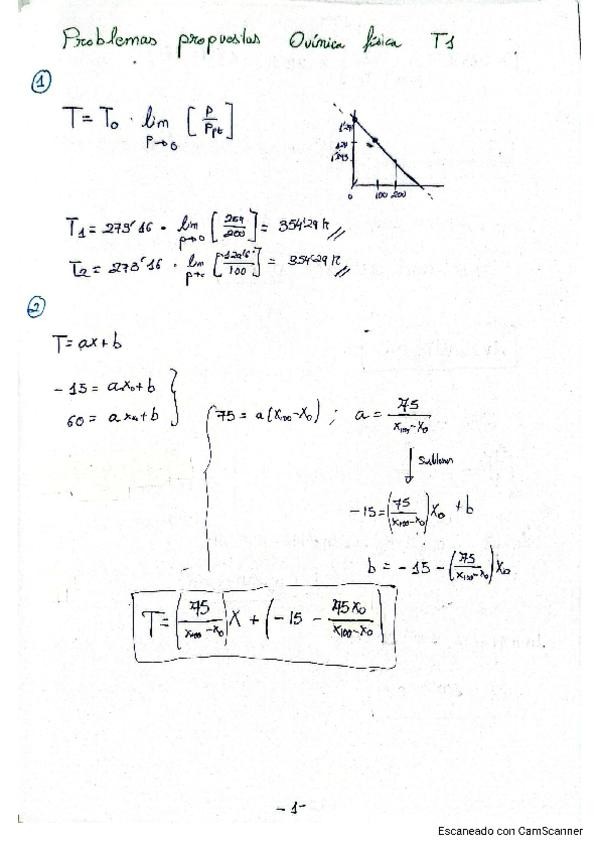 Problemas propuestos Química física T1
①
T = T₀ · lim P→0 [P/Ppt]
0 100 200
T₁ = 273'16 · lim P→0 [259/200] = 354'29 K //
T₂ = 273'16 · lim [/100] = 354'29 K //
②
T = ax + b
-15 = ax₀ + b
60 = ax + b
75 = a(x₁₀₀ - x₀) ; a = 75/(x₁₀₀ - x₀)
-15 = (75/(x₁₀₀ - x₀)) x₀ + b
b = -15 - (75/(x₁₀₀ - x₀)) x₀
T = (75/(x₁₀₀ - x₀)) X + (-15 - 75x₀/(x₁₀₀ - x₀))
- 1 -
Escaneado con CamScanner